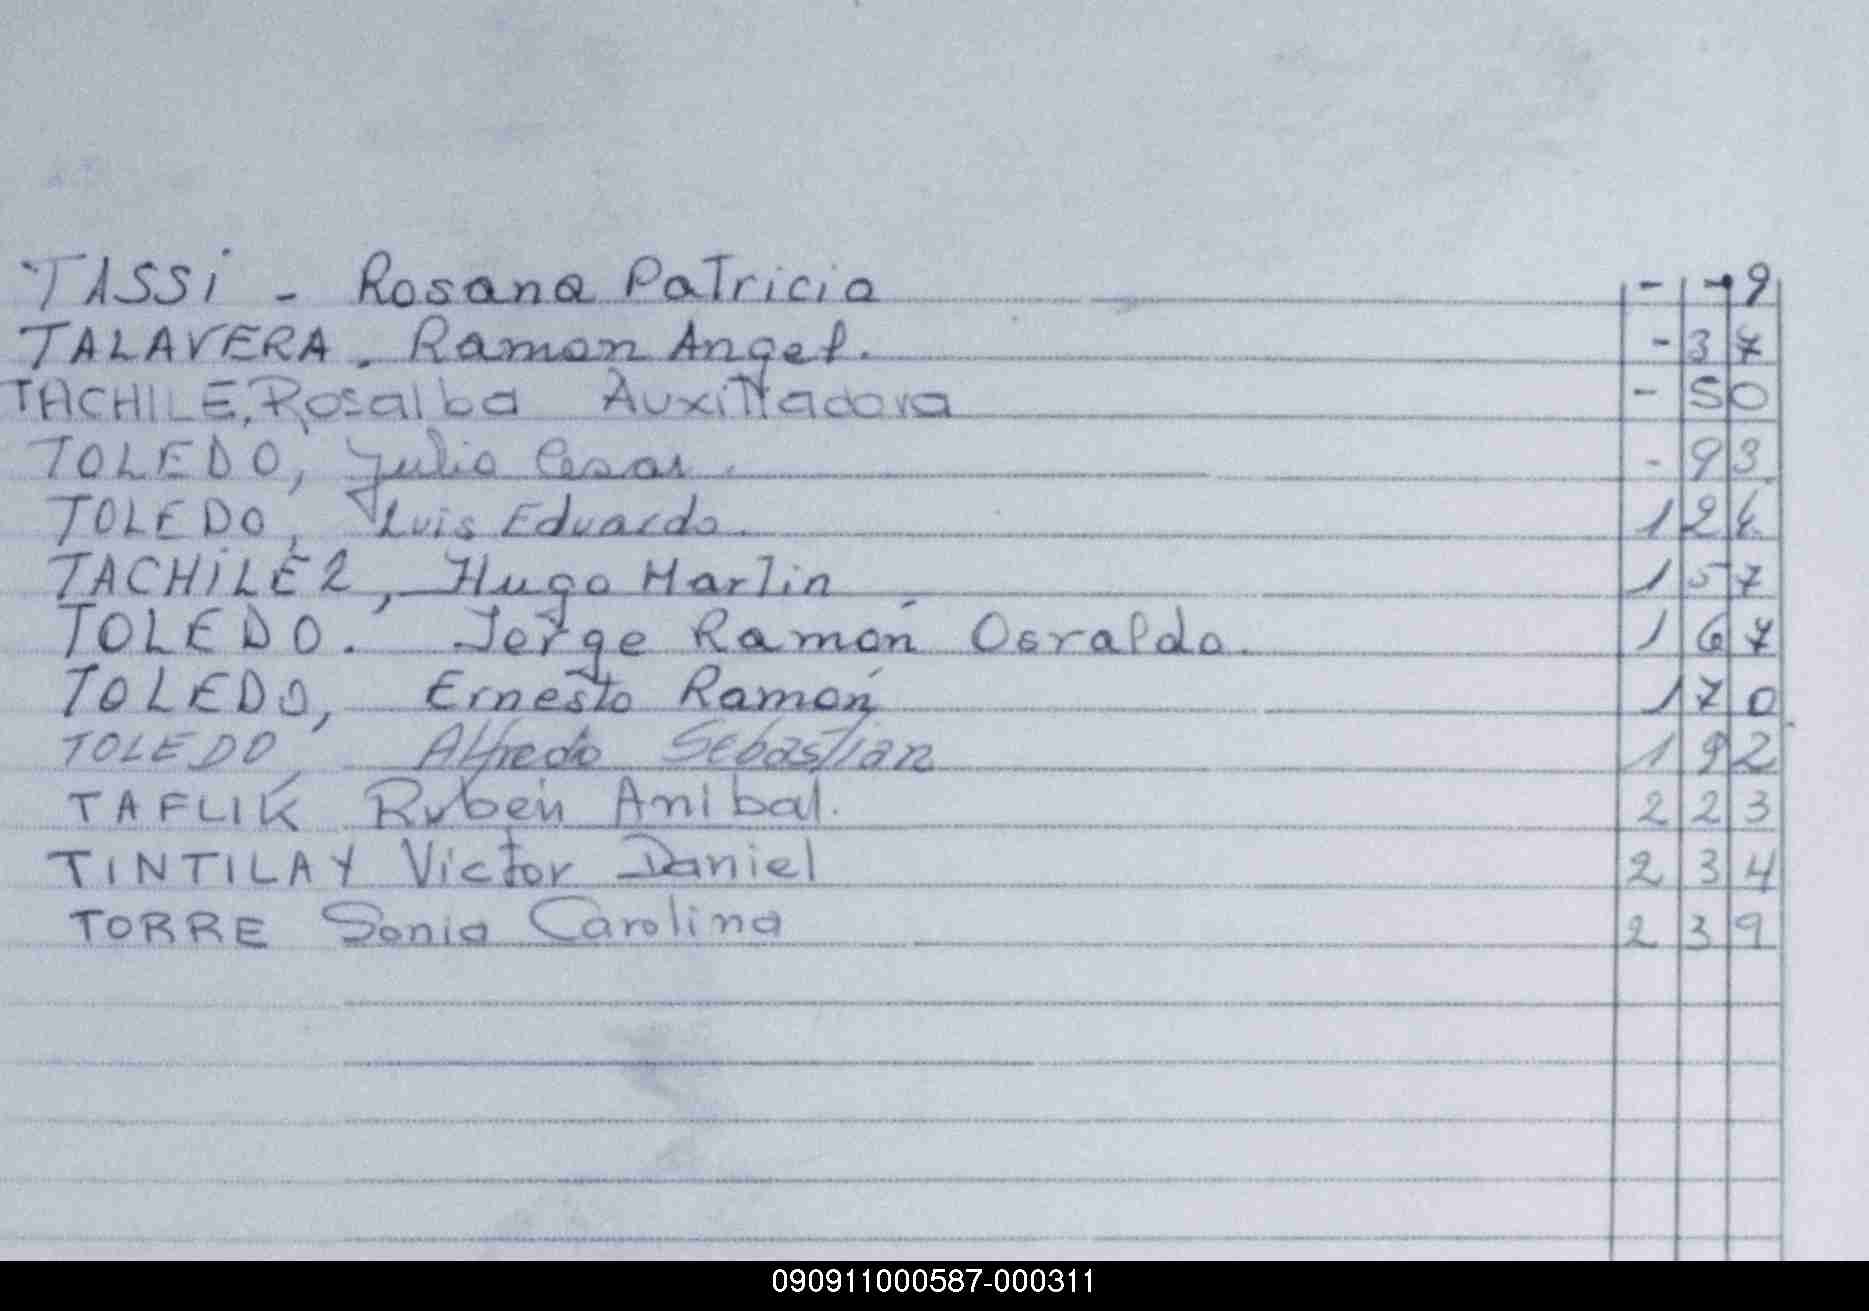 TASSi - Rosana Patricia - - 9
TALAVERA. Ramon Angel. - 3 7
TACHILE, Rosalba Auxiliadora - 5 0
TOLEDO, Julio Cesar. - 9 3
TOLEDO, Luis Eduardo. 1 2 4
TACHiLE2, Hugo Marlin 1 5 7
TOLEDO. Jorge Ramón Osvaldo. 1 6 7
TOLEDO, Ernesto Ramón 1 7 0
TOLEDO Alfredo Sebastian 1 9 2
TAFLIK Ruben Anibal. 2 2 3
TINTILAY Victor Daniel 2 3 4
TORRE Sonia Carolina 2 3 9
090911000587-000311